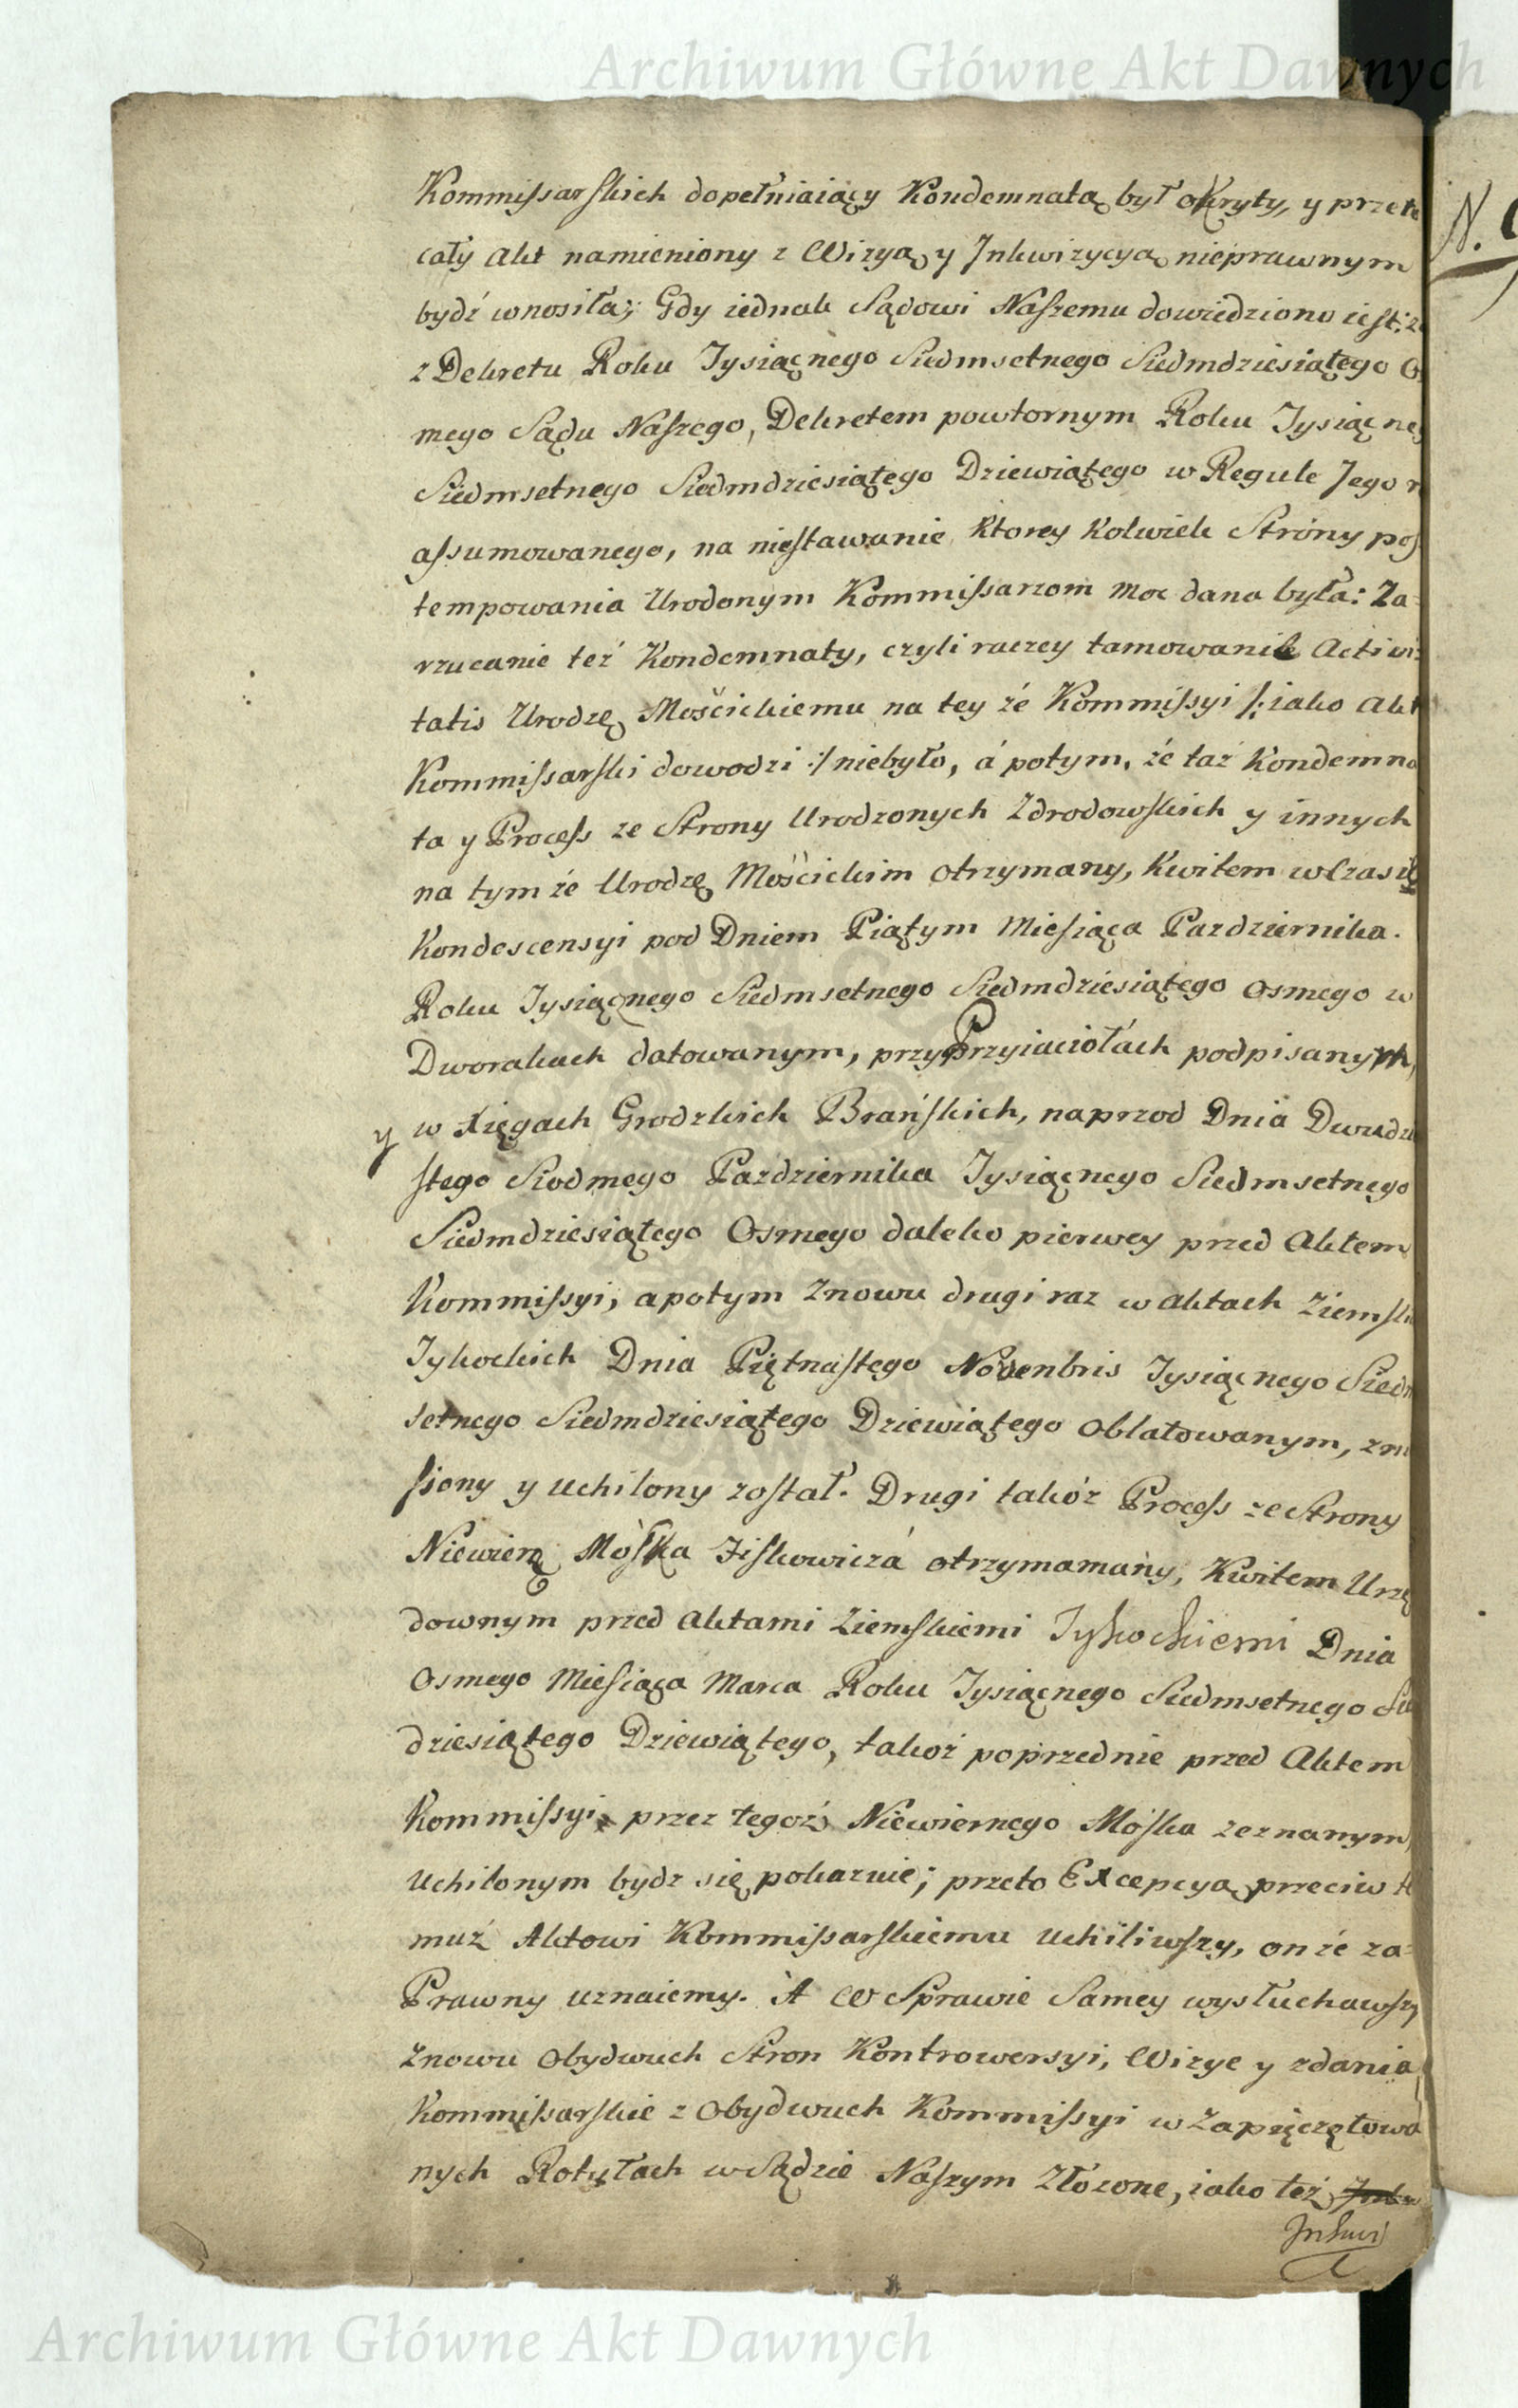 Archiwum Główne Akt Dawnych
Kommissarskich dopełniaiący Kondemnatą był okryty, y przeto
cały Akt namieniony z Wizyą y Jnkwizycyą nieprawnym
bydź wnosiła; Gdy iednak Sądowi Naszemu dowiedziono iest: że
z Dekretu Roku Tysiącnego Siedmsetnego Siedmdziesiątego O
mego Sądu Naszego, Dekretem powtornym Roku Tysiącneg
Siedmsetnego Siedmdziesiątego Dziewiątego w Regule Jego r
assumowanego, na niestawanie Ktorey Kolwiek Strony pos
tempowania Urodonym Kommissarzom moc dana była: Za=
rzucanie też Kondemnaty, czyli raczey tamowanie Activi=
tatis Urodzę Mościckiemu na tey że Kommissyi /: iako Akt
Kommissarski dowodzi :/ niebyło, á potym, że taż Kondemna
ta y Process ze Strony Urodzonych Zdrodowskich y innych
na tym że Urodzę Mościckim otrzymany, Kwitem w Czasie
Kondescensyi pod Dniem Piątym Miesiąca Pazdziernika.
Roku Tysiącnego Siedmsetnego Siedmdziesiątego Osmego w
Dworakach datowanym, przy Przyiaciołach podpisanym,
y w Xięgach Grodzkich Brańskich, naprzod Dnia Dwudzie
stego Siodmego Pazdziernika Tysiącnego Siedmsetnego
Siedmdziesiątego Osmego daleko pierwey przed Aktem
Kommissyi, a potym znowu drugi raz w aktach Ziemski
Tykockich Dnia Piętnastego Novenbris Tysiącnego Siedm
setnego Siedmdziesiątego Dziewiątego Oblatowanym, znie
siony y uchilony został. Drugi takóż Process ze Strony
Niewierą Móska Jiskowicza otrzymamany, Kwitem Urzę
downym przed Aktami Ziemskiemi Tykockiemi Dnia
Osmego Miesiąca Marca Roku Tysiącnego Siedmsetnego Sie
dziesiątego Dziewiątego, takoż poprzednie przed Aktem
Kommissyi przez tegoż Niewiernego Móska zeznanym,
Uchilonym bydz się pokazuie; przeto Excepcyą przeciw te
muż Aktowi Kommissarskiemu uchiliwszy, on że za=
Prawny uznaiemy. A w Sprawie Samey wysłuchawszy
znowu Obydwuch Stron Kontrowersyi, Wizye y zdania,
Kommissarskie z Obydwuch Kommissyi w Zapięczętowa
nych Rotułach w Sądzie Naszym Złożone, iako też
Jnkwi
N.
Archiwum Główne Akt Dawnych